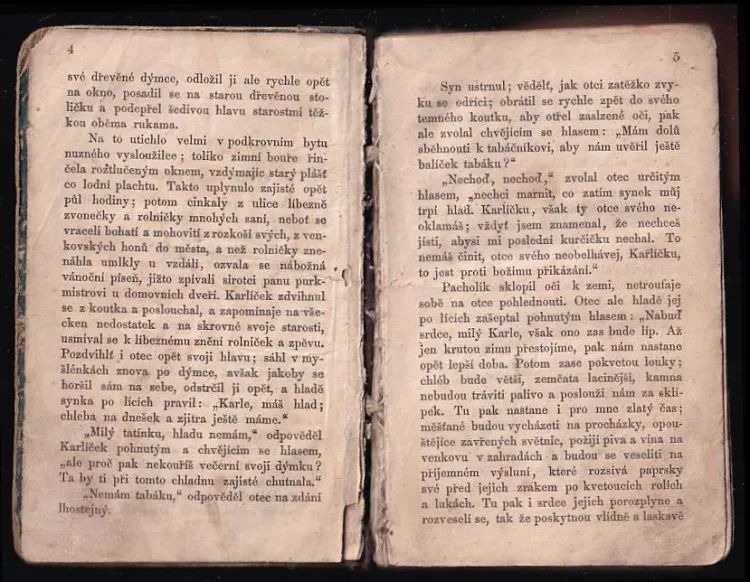 4
své dřevěné dýmce, odložil ji ale rychle opět
na okno, posadil se na starou dřevěnou sto-
ličku a podepřel šedivou hlavu starostmi těž-
kou oběma rukama.
Na to utichlo velmi v podkrovním bytu
nuzného vysloužilce; toliko zimní bouře řin-
čela roztlučeným oknem, vzdýmajíc starý plášť
co lodní plachtu. Takto uplynulo zajisté opět
půl hodiny; potom cinkaly z ulice líbezně
zvonečky a rolničky mnohých saní, neboť se
vraceli bohatí a mohovití z rozkoší svých, z ven-
kovských honů do města, a než rolničky zne-
náhla umlkly u vzdálí, ozvala se nábožná
vánoční píseň, jižto zpívali sirotci panu purk-
mistrovi u domovních dveří. Karlíček zdvihnul
se z koutka a poslouchal, a zapomínaje na vše-
cken nedostatek a na skrovné svoje starosti,
usmíval se k líbeznému znění rolniček a zpěvu.
Pozdvihlť i otec opět svoji hlavu; sáhl v my-
šlénkách znova po dýmce, avšak jakoby se
horšil sám na sebe, odstrčil ji opět, a hladě
synka po lících pravil: „Karle, máš hlad;
chleba na dnešek a zjitra ještě máme.“
„Milý tatínku, hladu nemám,“ odpověděl
Karlíček pohnutým a chvějícím se hlasem,
„ale proč pak nekouříš večerní svoji dýmku?
Ta by ti při tomto chladnu zajisté chutnala.“
„Nemám tabáku,“ odpověděl otec na zdání
lhostejný.
5
Syn ustrnul; vědělť, jak otci zatěžko zvy-
ku se odříci; obrátil se rychle zpět do svého
temného koutku, aby otřel zaslzené oči, pak
ale zvolal chvějícím se hlasem: „Mám dolů
sběhnouti k tabáčníkovi, aby nám uvěřil ještě
balíček tabáku?“
„Nechoď, nechoď,“ zvolal otec určitým
hlasem, „nechci marnit, co zatím synek můj
trpí hlad. Karlíčku, však ty otce svého ne-
oklamáš; vždyť jsem znamenal, že nechceš
jísti, abysi mi poslední kurčičku nechal. To
nemáš činit, otce svého neobelhávej, Karlíčku,
to jest proti božímu přikázání.“
Pacholík sklopil oči k zemi, netroufaje
sobě na otce pohlednouti. Otec ale hladě jej
po lících zašeptal pohnutým hlasem: „Nabuď
srdce, milý Karle, však ono zas bude líp. Až
jen krutou zimu přestojíme, pak nám nastane
opět lepší doba. Potom zase pokvetou louky;
chléb bude větší, zemčata lacinější, kamna
nebudou tráviti palivo a poslouží nám za skli-
pek. Tu pak nastane i pro mne zlatý čas;
měšťané budou vycházeti na procházky, opou-
štějíce zavřených světnic, požijí piva a vína na
venkovu v zahradách a budou se veseliti na
příjemném výsluní, které rozsívá paprsky
své před jejich zrakem po kvetoucích rolích
a lukách. Tu pak i srdce jejich porozplyne a
rozveselí se, tak že poskytnou vlídné a laskavé